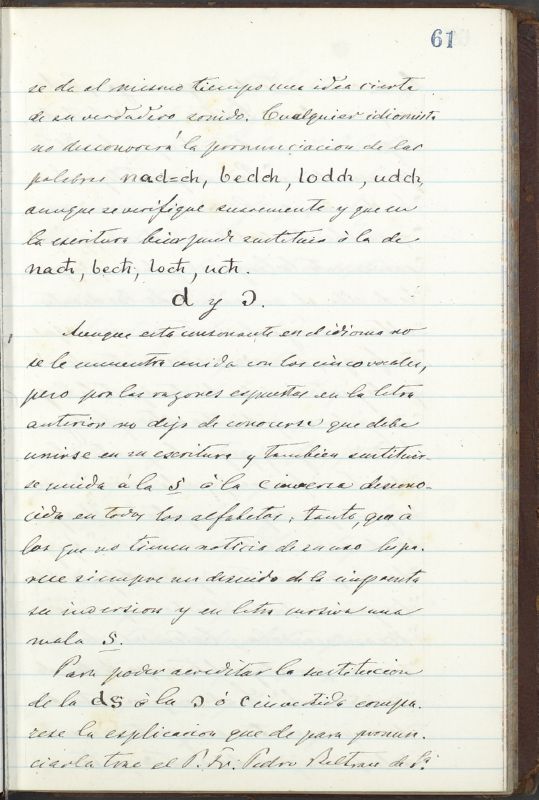 61
se da al mismo tiempo una idea cierta
de su verdadero sonido. Cualquier idiomista
no desconocerá la pronunciacion de las
palabras nad=ch, bedch, lodch, udch,
aunque se verifique suavemente y que en
la escritura bien puede sustituir á la de
nach, bech, loch, uch.
d y ɔ.
Aunque esta consonante en el idioma no
se le encuentra unida con las cinco vocales,
pero por las razones espuestas en la letra
anterior no dejo de conocerse que debe
unirse en su escritura y tambien sustituir
se unida á la s ó la c inversa descono-
cida en todos los alfabetos; tanto, que á
los que no tienen noticia de su uso les pa-
rece siempre un descuido de la imprenta
su inversion y en letra cursiva una
mala s.
Para poder acreditar la sustitucion
de la ds á la ɔ ó c invertida compa-
rese la esplicacion que de para pronun-
ciarla trae el P. Fr. Pedro Beltran de Sª